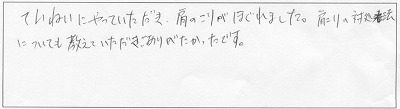 ていねいにやっていただき、肩のこりがほぐれました。肩こりの対処法
についても教えていただきありがたかったです。